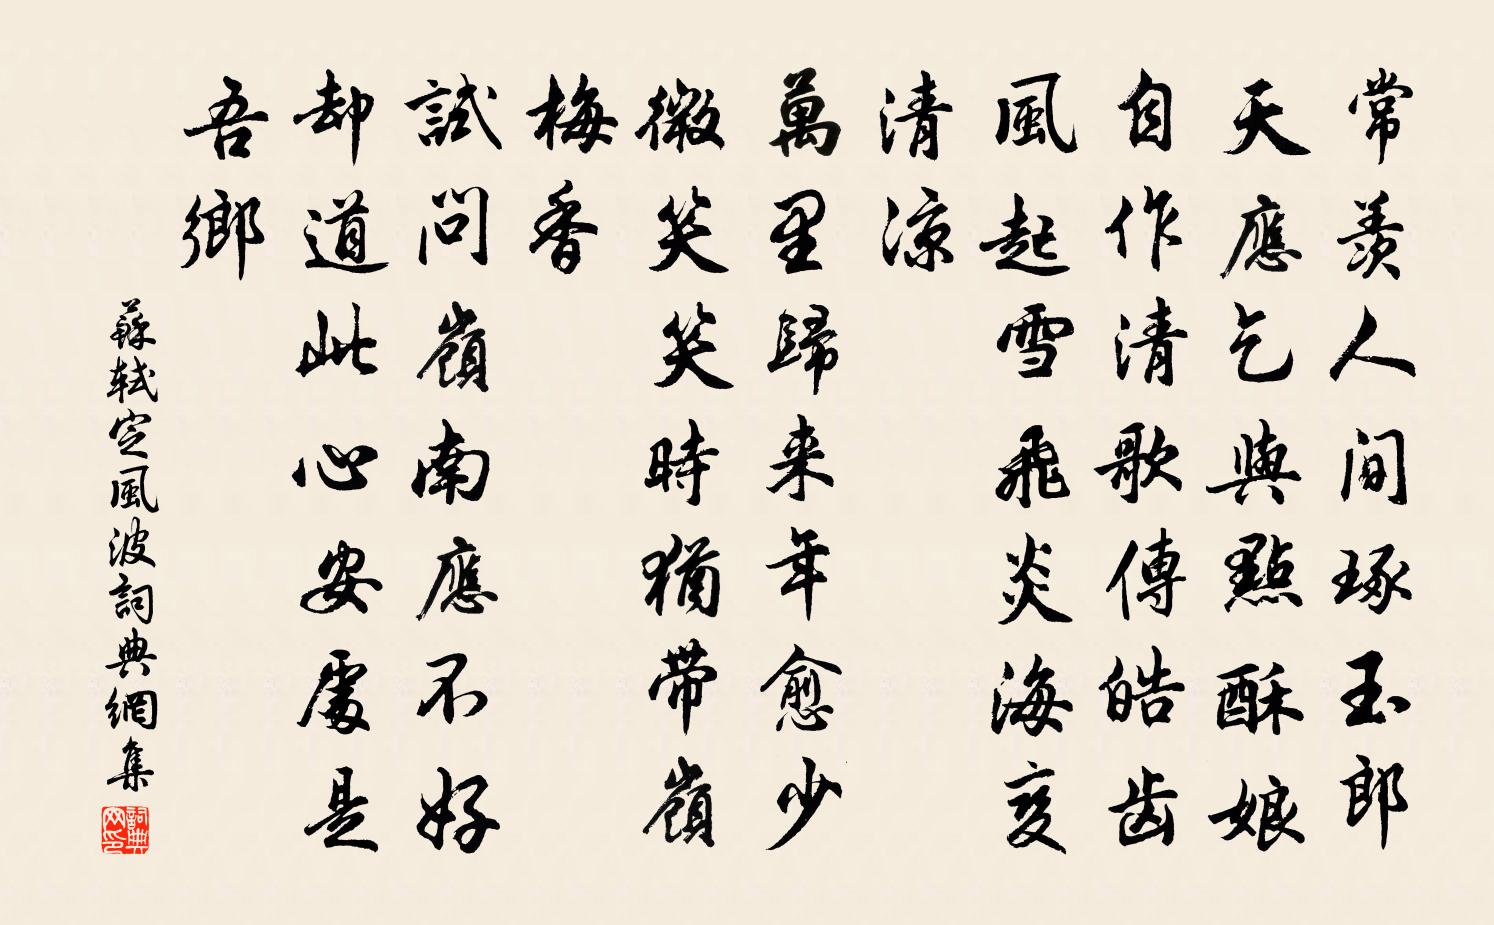 常羨人間琢玉郎
天應乞與點酥娘
自作清歌傳皓齒
風起雪飛炎海變
清涼
萬里歸来年愈少
微笑笑時猶帶嶺
梅香
試問嶺南應不好
却道此心安處是
吾鄉
蘇軾定風波詞典網集
詞典網印